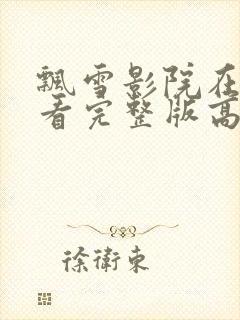 飄雪影院在
看完整版高
徐衛東